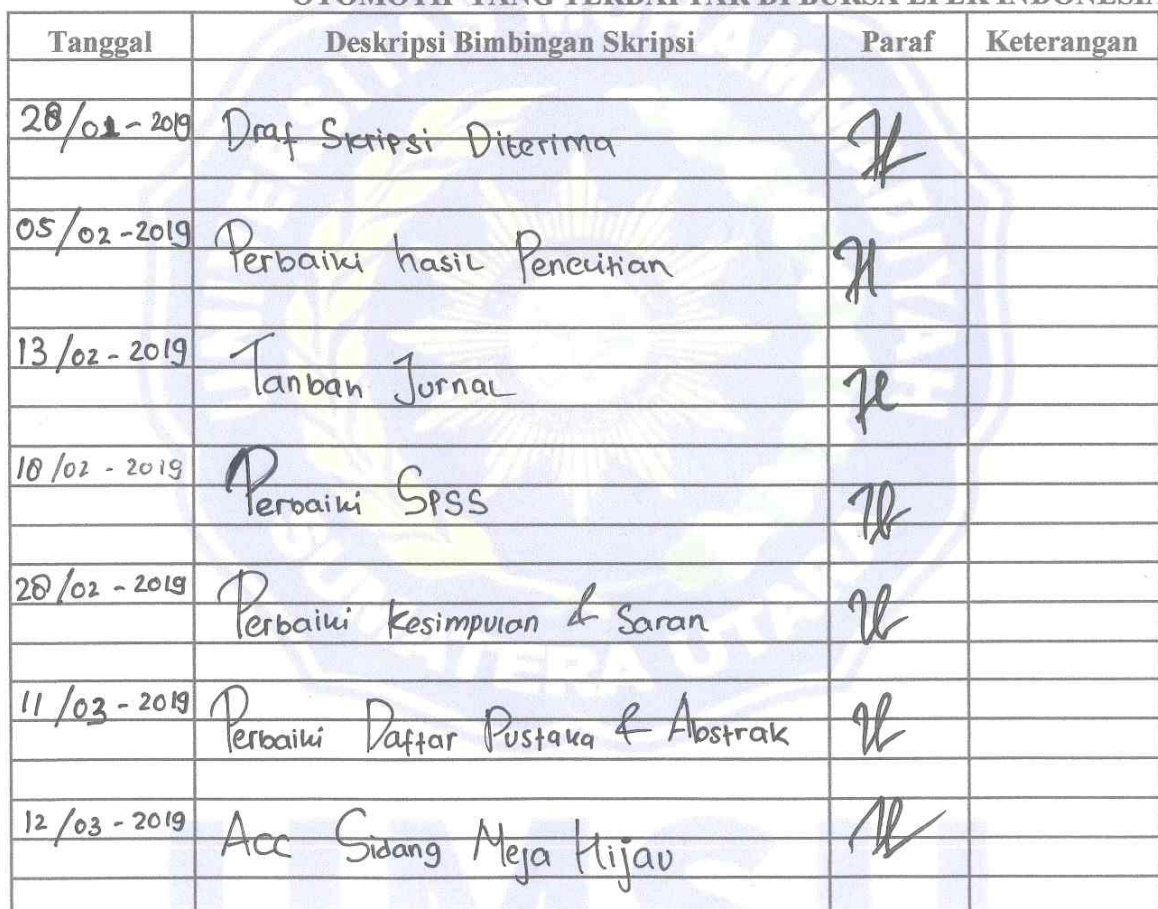 OTOMOTIF YANG TERDAFTAR DI BURSA EFEK INDONESIA
Tanggal Deskripsi Bimbingan Skripsi Paraf Keterangan
28/01-2019 Draf Skripsi Diterima
05/02-2019 Perbaiki hasil Penelitian
13/02-2019 Tanbah Jurnal
18/02-2019 Perbaiki SPSS
28/02-2019 Perbaiki Kesimpulan & Saran
11/03-2019 Perbaiki Daftar Pustaka & Abstrak
12/03-2019 Acc Sidang Meja Hijau
UNIVERSITAS MUHAMMADIYAH
SUMATERA UTARA
UMSU